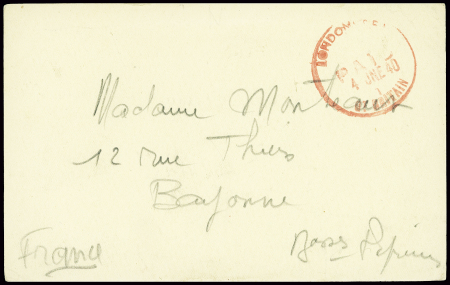 LONDON
PAID
4 JNE 40
GT BRITAIN
Madame
12 rue Thiers
Bayonne
France
Basses Pyrénées